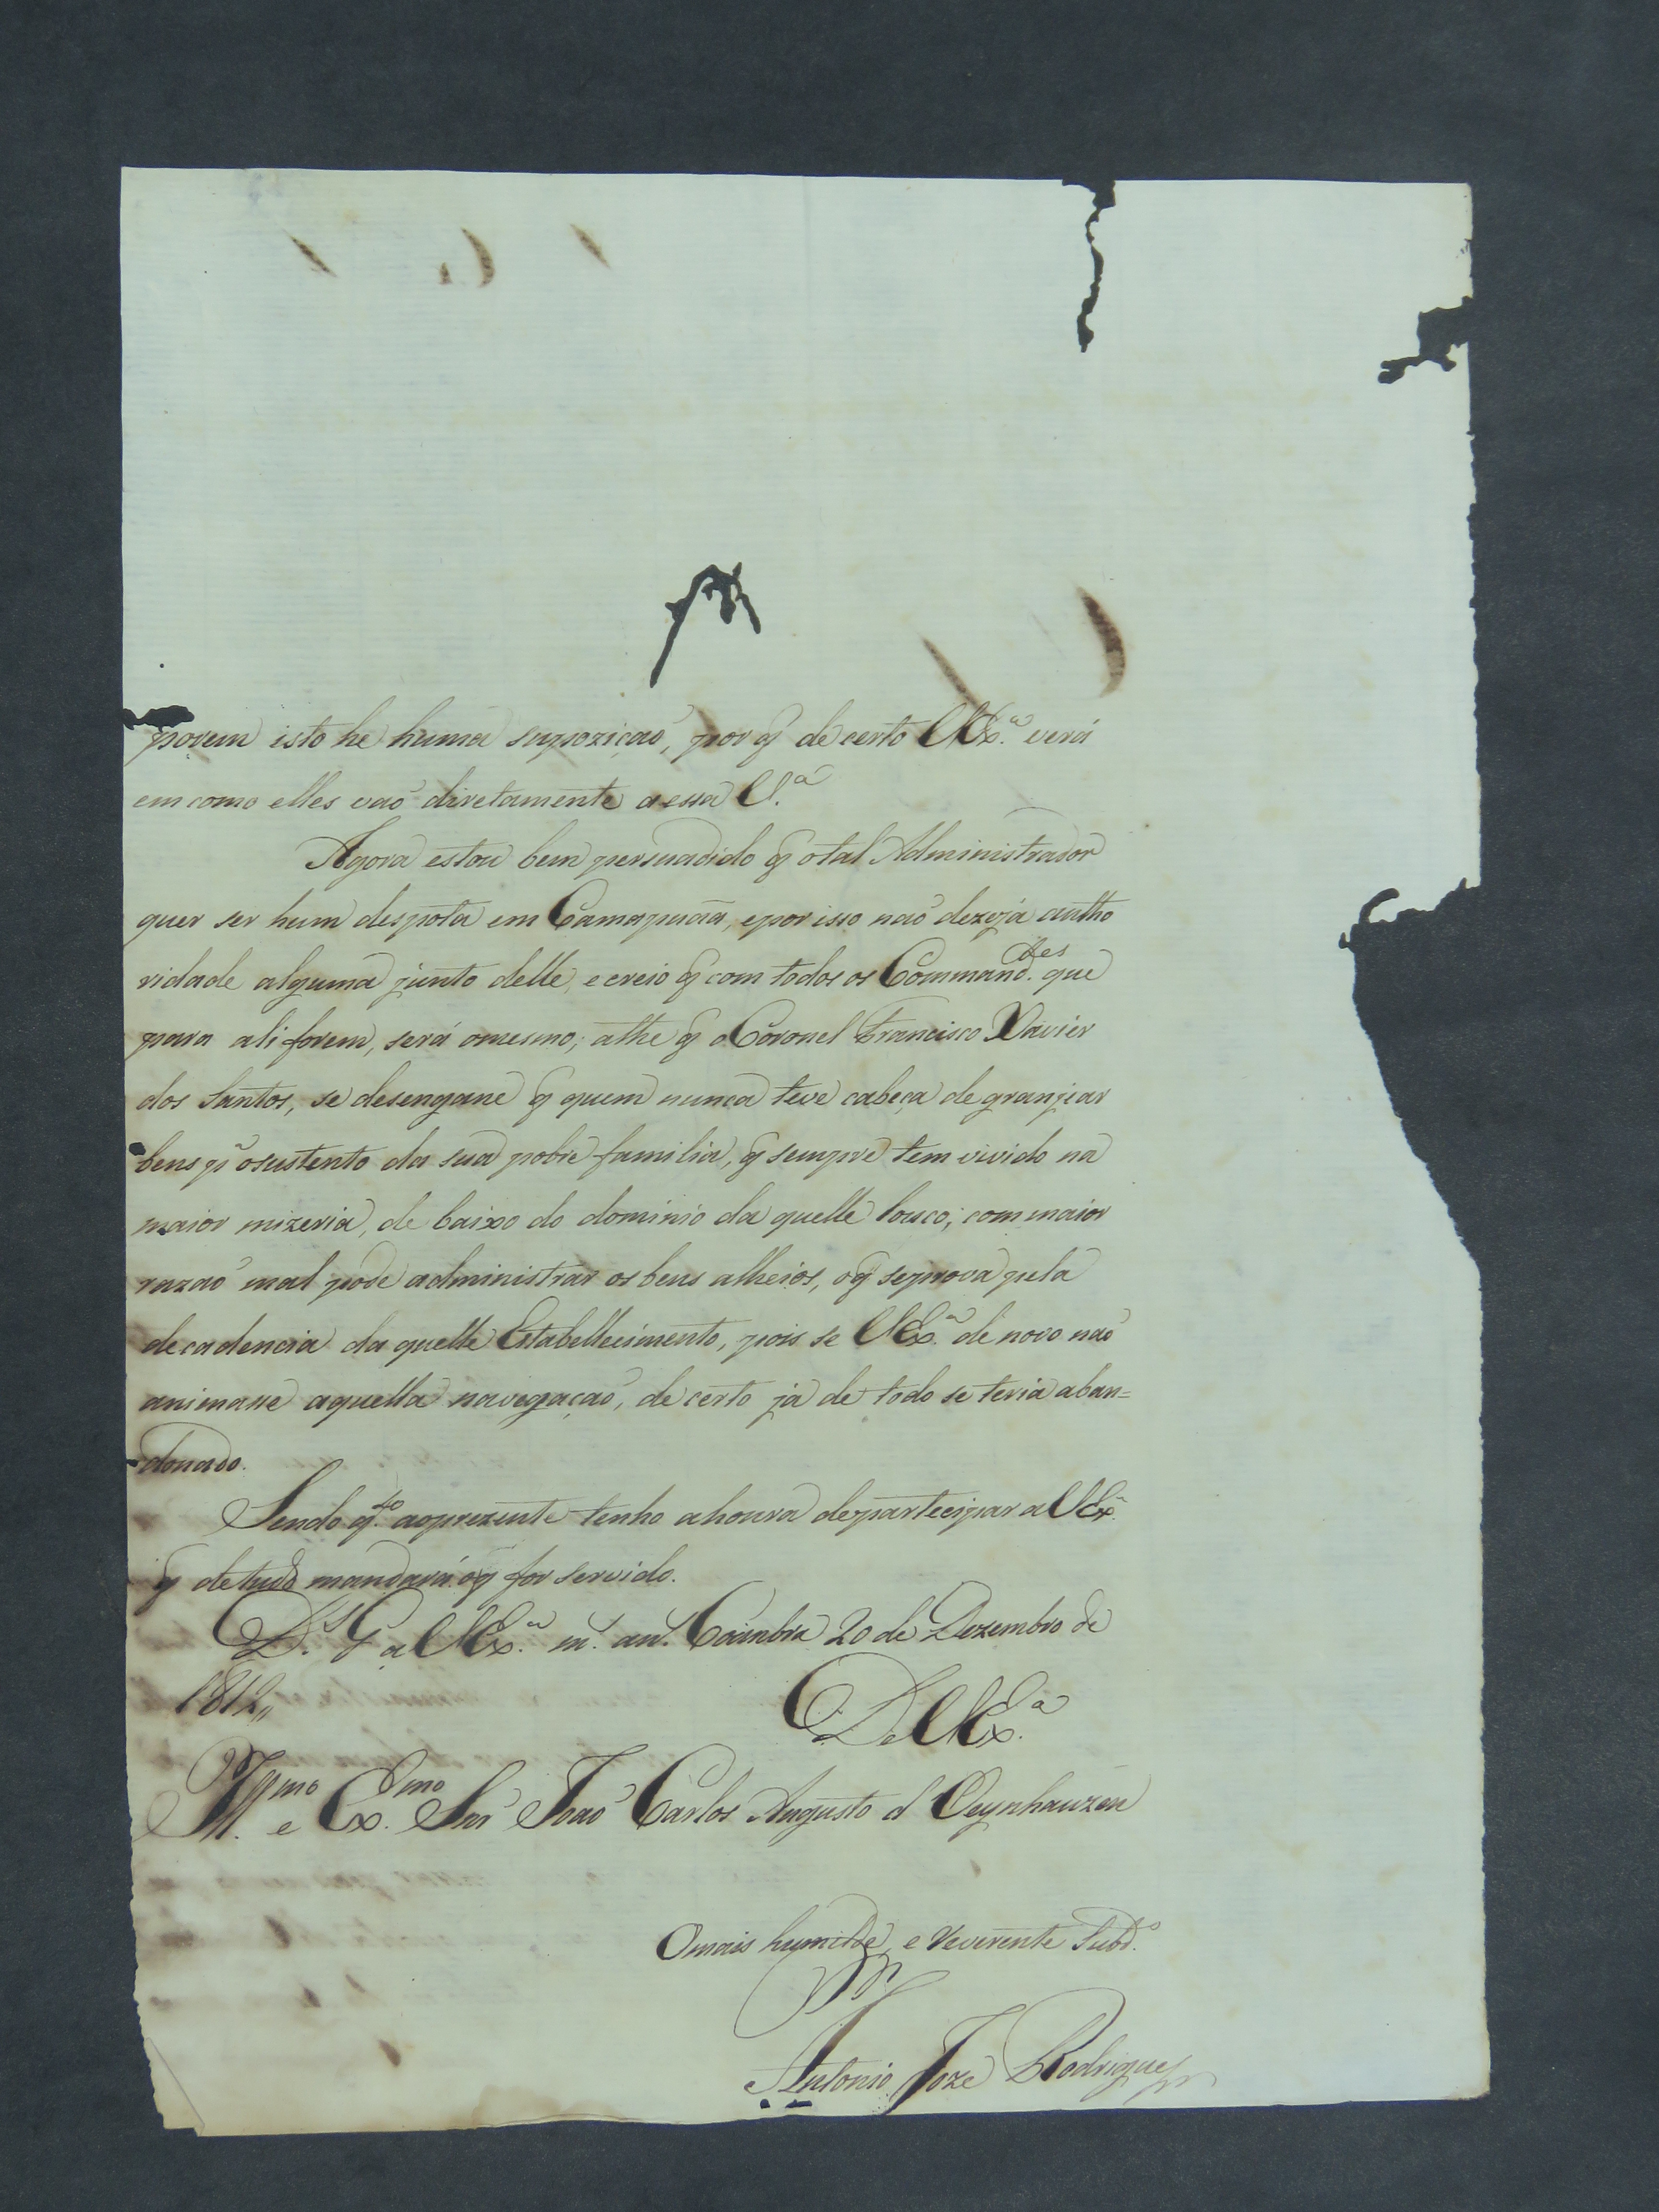 porem isto he huma supoziçaõ, por q̃ de certo VEx.ª verá
em como elles vaõ diretamente a essa V.ª
Agora estou bem persuadido q̃ o tal Administrador
quer ser hum despota em Camapuaã, epor isso naõ dezeja autho
ridade alguma junto delle, e creio q̃ com todos os Command.des que
para ali forem, será omesmo; athe q̃ o Coronel Francisco Xavier
dos Santos, se desengane q̃ quem nunca teve cabeça de granjear
bens pª osustento da sua pobre familia, q̃ sempre tem vivido na
maior mizeria, de baixo do dominio da quelle louco; com maior
razaõ mal pode administrar os bens alheios, oq̃ seprova pela
decadencia da quelle Estabellecimento, pois se VEx.ª de novo naõ
animasse aquella navegaçaõ, de certo ja de todo se teria aban=
donado.
Sendo q.to aoprezente tenho ahonra departecipar a VEx.ª
q̃ detudo mandará oq̃ for servido.
D.s G. a VEx.ª m.s an.s Coimbra 20 de Dezembro de
1812,,
De VEx.ª
Ill.mo e Ex.mo Snr̃ Joaõ Carlos Augusto d Oeynhauzen
Omais humilde, e reverente Subd.º
Antonio Joze Rodrigues